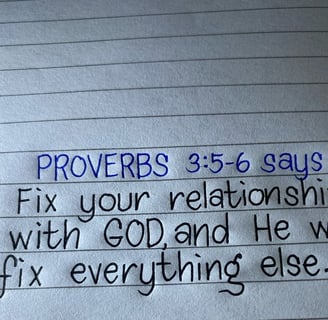 PROVERBS 3:5-6 says
Fix your relationshi
with GOD, and He w
fix everything else.